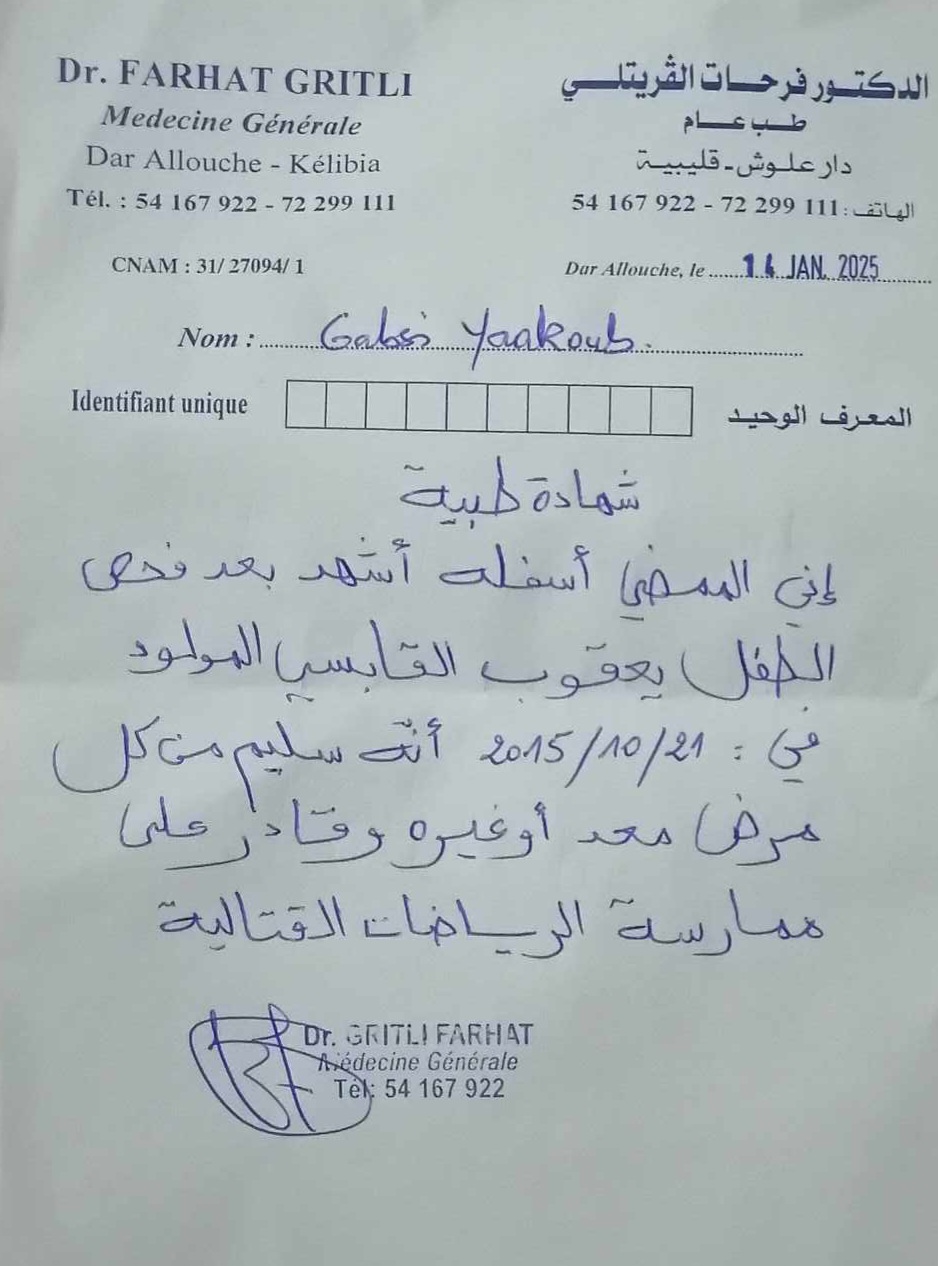 Dr. FARHAT GRITLI
Medecine Générale
Dar Allouche - Kélibia
Tél. : 54 167 922 - 72 299 111
الدكتور فرحات الڤريتلي
طب عام
دار علوش - قليبية
الهاتف : 111 299 72 - 922 167 54
CNAM : 31/ 27094/ 1
Dar Allouche, le 14 JAN. 2025
Nom : Gabsi Yaakoub.
Identifiant unique المعرف الوحيد
شهادة طبية
إني الممضي أسفله أشهد بعد فحص
الطفل يعقوب القابسي المولود
في : 2015/10/21 أنّه سليم من كل
مرض معد أو غيره وقادر على
ممارسة الرياضات القتالية
Dr. GRITLI FARHAT
Médecine Générale
Tél: 54 167 922